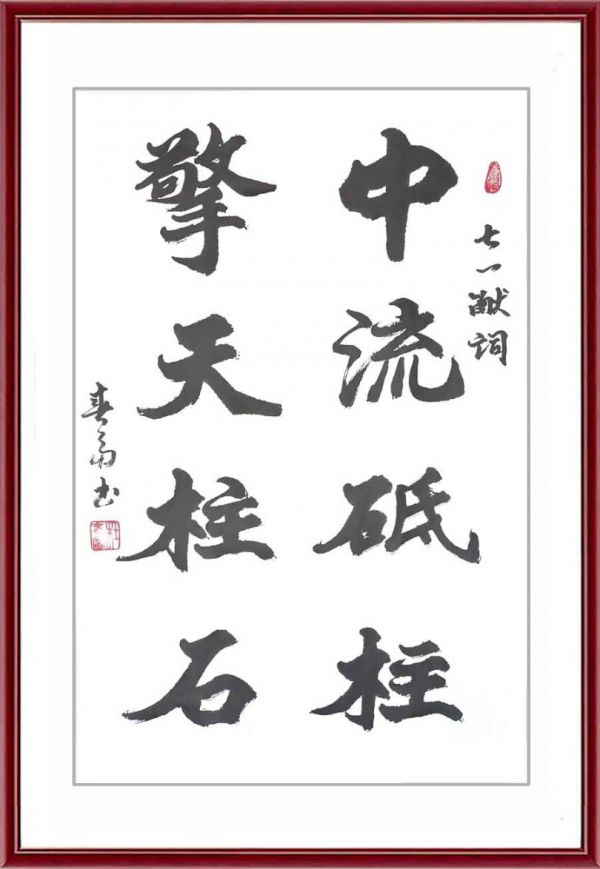 七一献词
中流砥柱
擎天柱石
春雨书